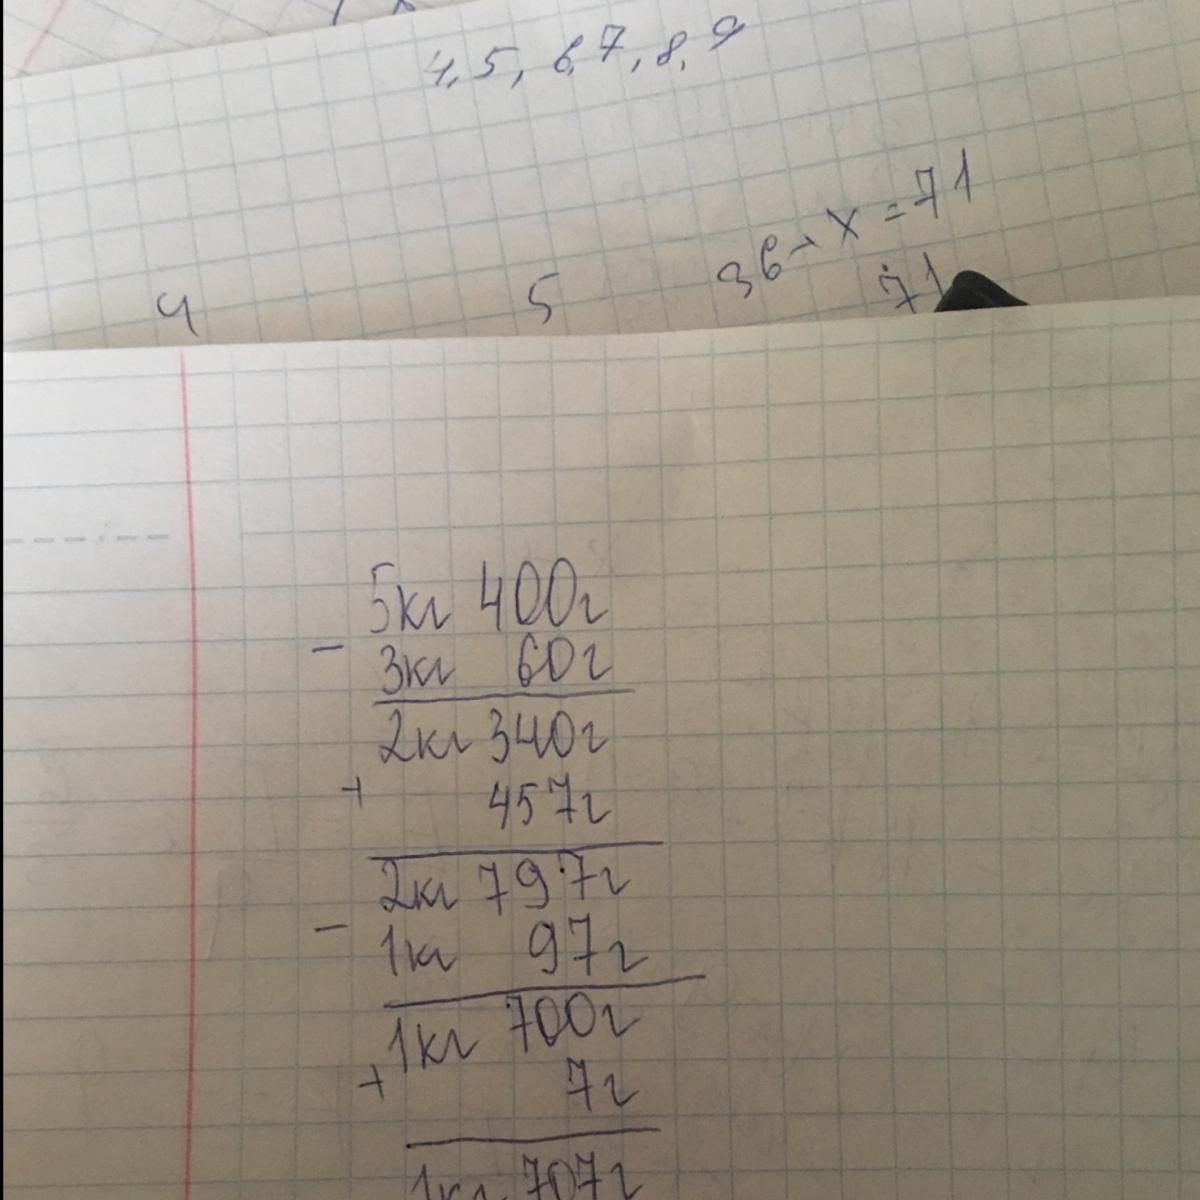 4, 5, 6, 7, 8, 9
36 + x = 71
71
4 5
5кг 400г
-
3кг 60г
2кг 340г
+
457г
2кг 797г
-
1кг 97г
1кг 700г
+
7г
1кг 707г